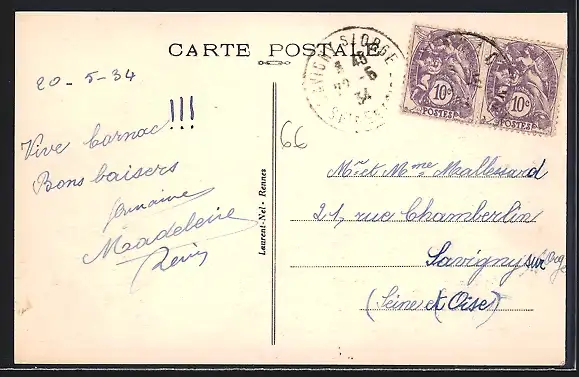 CARTE POSTALE
20-5-34
Vive Carnac !!!
Bons baisers
Germaine
Madeleine
Rémy
Laurent-Nel - Rennes
66
SAVIGNY S/ORGE
18
5
34
10c
POSTES
10c
POSTES
Mr et Mme Mallessard
21, rue Chamberlin
Savigny sur Orge
(Seine et Oise)